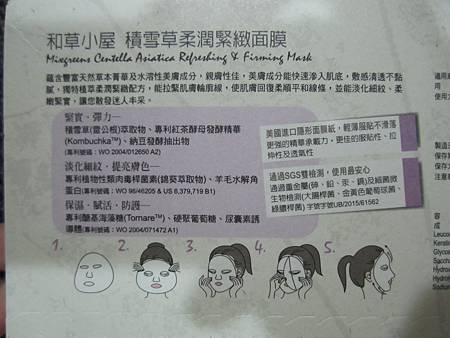 和草小屋 積雪草柔潤緊緻面膜
Mixgreens Centella Asiatica Refreshing & Firming Mask
蘊含豐富天然草本菁華及水溶性美膚成分，親膚性佳，美膚成分能快速滲入肌底，敷感清透不黏
膩，獨特植萃柔潤緊緻配方，能拉緊肌膚輪廓線，使肌膚回復柔順平和線條，並能淡化細紋、柔
嫩緊實，讓您散發迷人丰采。
緊實．彈力—
積雪草(雷公根)萃取物、專利紅茶酵母發酵精華
(Kombuchka™)、納豆發酵抽出物
(專利號碼：WO 2004/012650 A2)
淡化細紋．提亮膚色—
專利植物性類肉毒桿菌素(錦葵萃取物)、羊毛水解角
蛋白(專利號碼：WO 98/46205 & US 8,379,719 B1)
保濕．賦活．防護—
專利醣基海藻糖(Tornare™)、硬聚葡萄糖、尿囊素誘
導體(專利號碼：WO 2004/071472 A1)
美國進口隱形面膜紙，輕薄服貼不滑落
更強的精華承載力，更佳的服貼性、拉
伸性及透氣性
通過SGS雙檢測，使用最安心
通過重金屬(砷、鉛、汞、鎘)及細菌微
生物檢測(大腸桿菌、金黃色葡萄球菌、
綠膿桿菌) 字號字號UB/2015/61562
1. 2. 3. 4. 5.
適用
使用
方
製造
保存
注意
成
Leuco
Keratin
Glycos
Sacch
Hydro
Sodium